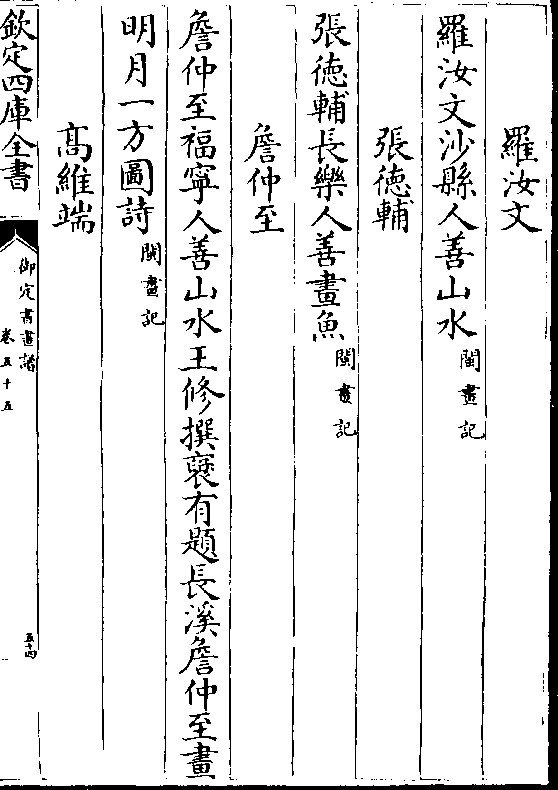 羅汝文
羅汝文沙縣人善山水閩畫記
張徳輔
張徳輔長樂人善畫魚閩畫記
詹仲至
詹仲至福寧人善山水王修撰褎有題長溪詹仲至畫
明月一方圖詩閩畫記
髙維端
欽定四庫全書
御定書畫譜
卷五十五
五十四